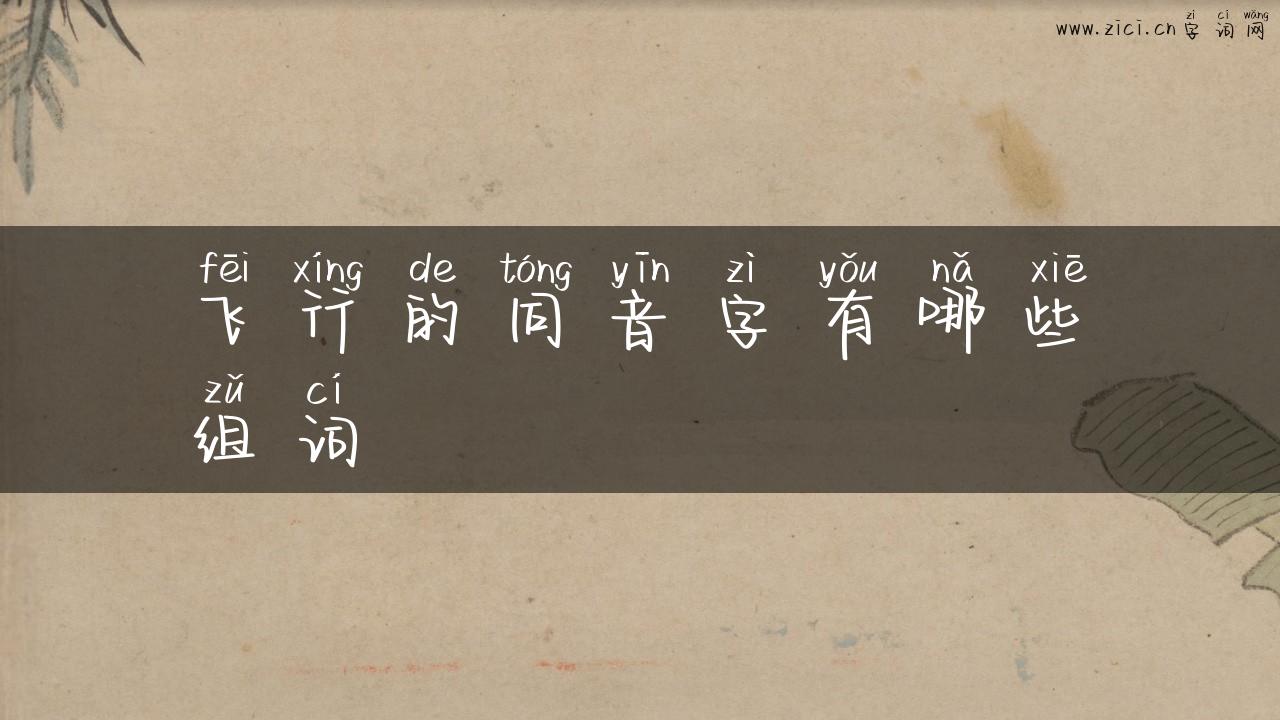 zì cí wǎng
www.zici.cn 字词网
fēi xíng de tóng yīn zì yǒu nǎ xiē
飞行的同音字有哪些
zǔ cí
组词